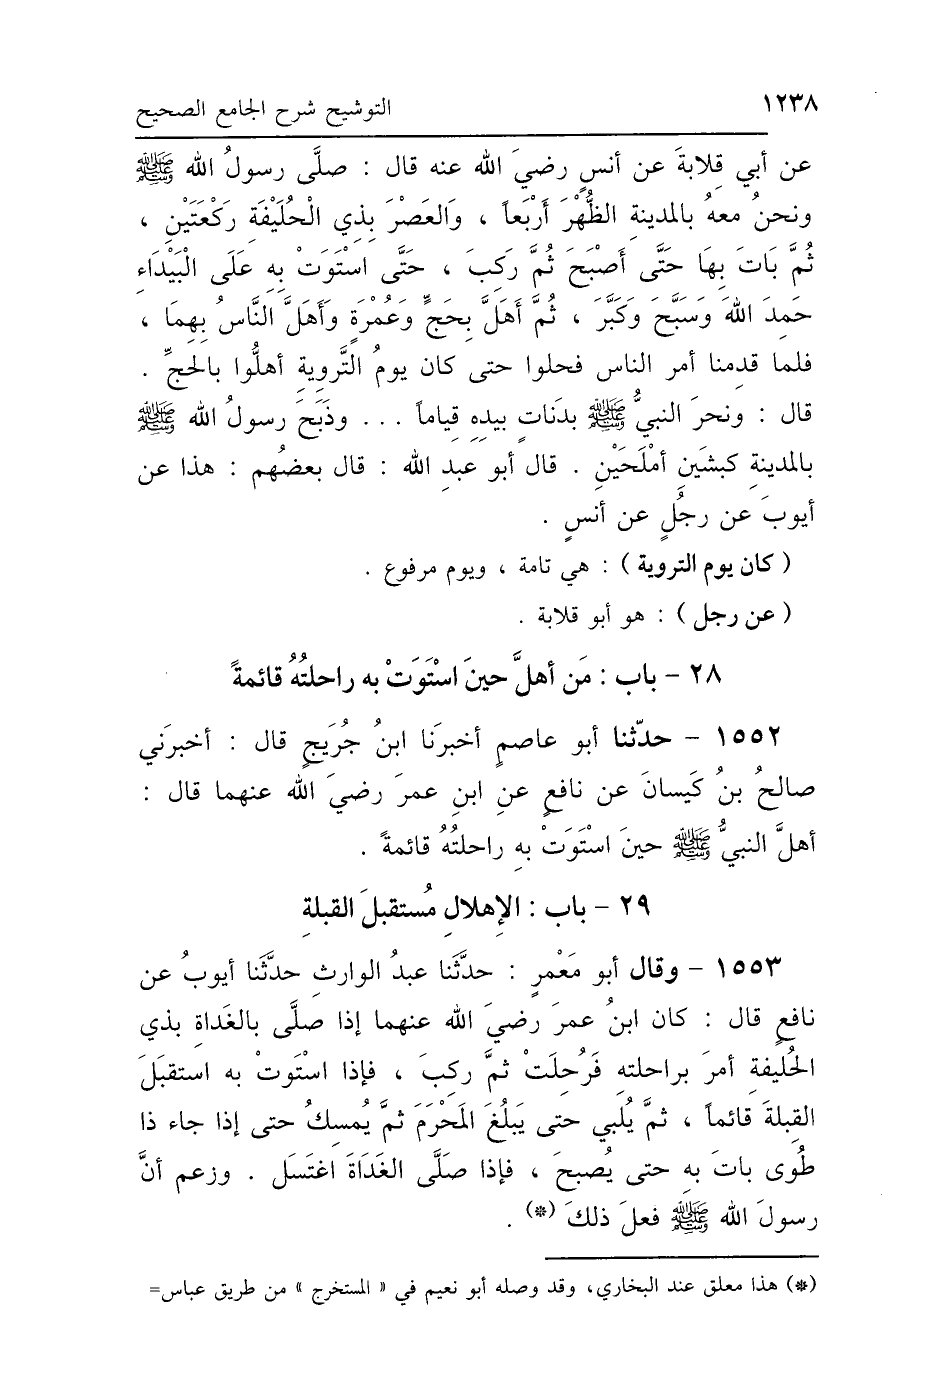 ١٢٣٨ التوشيح شرح الجامع الصحيح
عن أبي قلابةَ عن أنسٍ رضيَ الله عنه قال : صلَّى رسولُ الله ﷺ
ونحنُ معهُ بالمدينةِ الظُّهْرَ أَرْبَعاً ، وَالعَصْرَ بِذِي الْحُلَيْفَة رَكْعَتَيْنِ ،
ثُمَّ بَاتَ بِهَا حَتَّى أَصْبَحَ ثُمَّ رَكِبَ ، حَتَّى اسْتَوَتْ بِهِ عَلَى الْبَيْدَاءِ
حَمِدَ اللهَ وَسَبَّحَ وَكَبَّرَ ، ثُمَّ أَهَلَّ بِحَجٍّ وَعُمْرَةٍ وَأَهَلَّ النَّاسُ بِهِمَا ،
فلما قدِمنا أمر الناس فحلوا حتى كان يومُ التَّرويةِ أهلُّوا بالحجِّ .
قال : ونحرَ النبيُّ ﷺ بدَناتٍ بيدِهِ قِياماً ... وذَبَحَ رسولُ الله ﷺ
بالمدينةِ كبشَينِ أمْلَحَيْنِ . قال أبو عبدِ الله : قال بعضُهم : هذا عن
أيوبَ عن رجُلٍ عن أنسٍ .
( كان يوم التروية ) : هي تامة ، ويوم مرفوع .
( عن رجل ) : هو أبو قلابة .
٢٨ - باب : مَن أهلَّ حينَ اسْتَوَتْ به راحلتُهُ قائمةً
١٥٥٢ - حدّثنا أبو عاصمٍ أخبرَنا ابنُ جُرَيجٍ قال : أخبرَني
صالحُ بنُ كَيسانَ عن نافعٍ عنِ ابنِ عمرَ رضيَ الله عنهما قال :
أهلَّ النبيُّ ﷺ حينَ اسْتَوَتْ بهِ راحلتُهُ قائمةً .
٢٩ - باب : الإهلالِ مُستقبلَ القبلةِ
١٥٥٣ - وقال أبو مَعْمرٍ : حدَّثَنا عبدُ الوارثِ حدَّثَنا أيوبُ عن
نافعٍ قال : كان ابنُ عمرَ رضيَ الله عنهما إذا صلَّى بالغَداةِ بذي
الحُليفةِ أمرَ براحلتهِ فَرُحلَتْ ثمَّ ركبَ ، فإذا استَوتْ به استقبَلَ
القبلةَ قائماً ، ثمَّ يُلبي حتى يَبلُغَ المَحْرَمَ ثمَّ يُمسكُ حتى إذا جاء ذا
طُوى باتَ بهِ حتى يُصبحَ ، فإذا صَلَّى الغَدَاةَ اغتَسَل . وزعم أنَّ
رسولَ الله ﷺ فعلَ ذلكَ (*) .
(*) هذا معلق عند البخاري، وقد وصله أبو نعيم في « المستخرج » من طريق عباس=